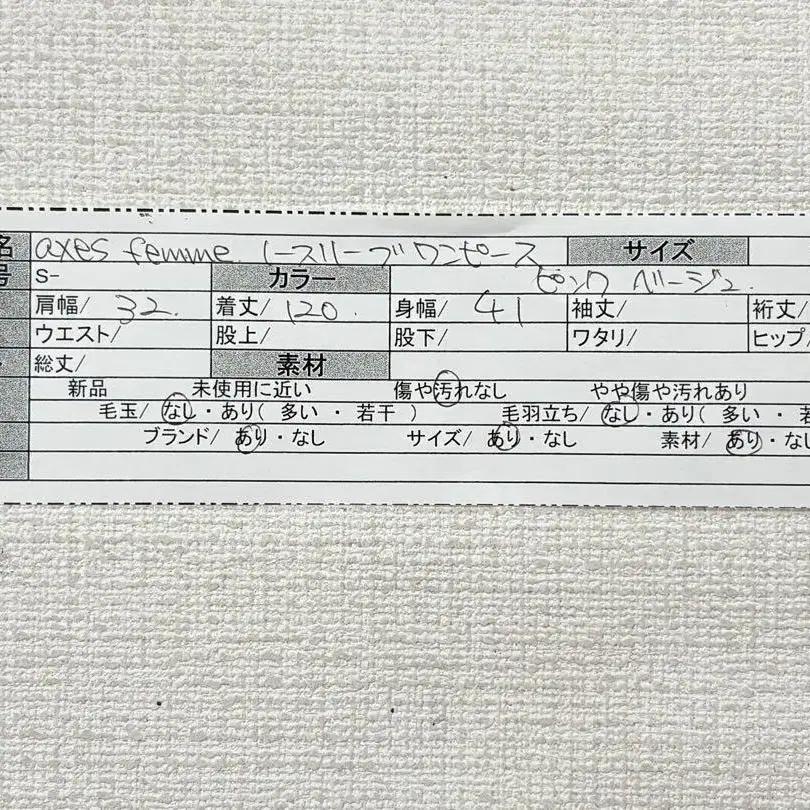 名 axes femme レースリーブワンピース サイズ
号 S- カラー ピンクベージュ
肩幅/ 32. 着丈/ 120. 身幅/ 41 袖丈/ 裄丈/
ウエスト/ 股上/ 股下/ ワタリ/ ヒップ/
総丈/ 素材
新品 未使用に近い 傷や汚れなし やや傷や汚れあり
毛玉/ なし・あり( 多い ・ 若干 ) 毛羽立ち/ なし・あり( 多い ・ 若
ブランド/ あり・なし サイズ/ あり・なし 素材/ あり・なし